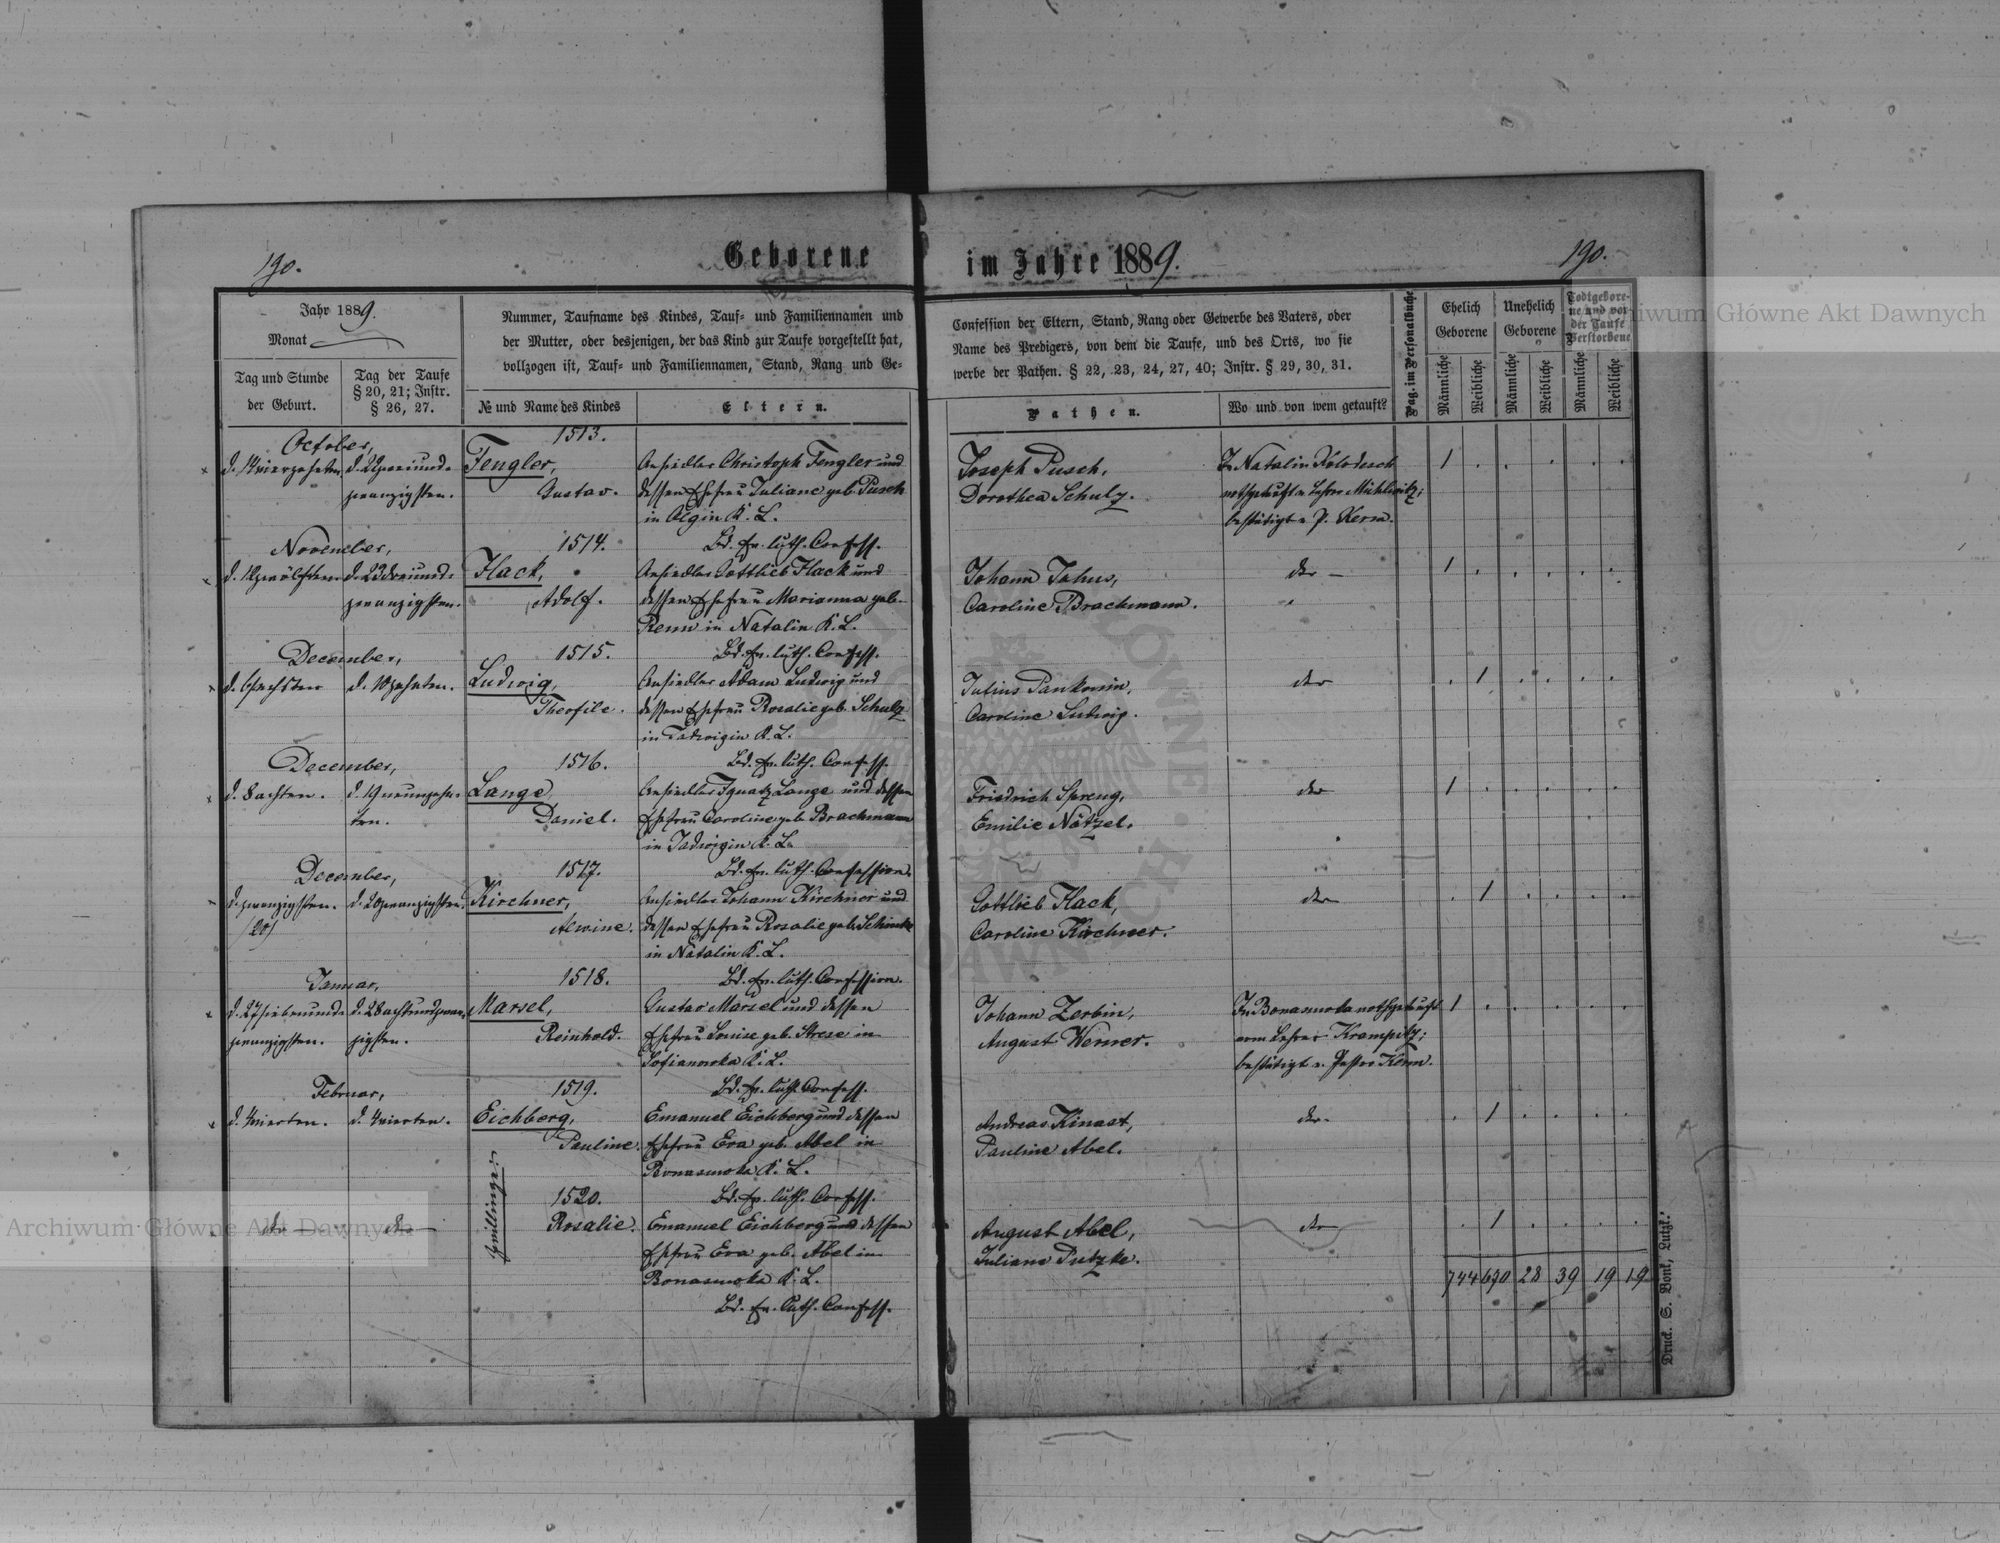 190.
Geborene
im Jahre 1889.
190.
Jahr 1889.
Monat
Tag und Stunde
der Geburt.
Tag der Taufe
§ 20, 21; Instr.
§ 26, 27.
Nummer, Taufname des Kindes, Tauf- und Familiennamen und
der Mutter, oder desjenigen, der das Kind zur Taufe vorgestellt hat,
vollzogen ist, Tauf- und Familiennamen, Stand, Rang und Ge-
№ und Name des Kindes
Eltern.
Confession der Eltern, Stand, Rang oder Gewerbe des Vaters, oder
Name des Predigers, von dem die Taufe, und des Orts, wo sie
werbe der Pathen. § 22, 23, 24, 27, 40; Instr. § 29, 30, 31.
Pathen.
Wo und von wem getauft?
Pag. im Personalbuche
Ehelich
Geborene
Männliche
Weibliche
Unehelich
Geborene
Männliche
Weibliche
Todtgebore-
ne und vor
der Taufe
Verstorbene
Männliche
Weibliche
October,
d. 14 vierzehnten
d. 22 zweiund-
zwanzigsten.
1513.
Fengler,
Gustav.
Ansiedler Christoph Fengler und
dessen Ehefrau Juliane geb. Pusch
in Olgin K. L.
Bd. Ev. luth. Confess.
Joseph Pusch,
Dorothea Schulz.
In Natalin
nothgetauft v. Lehrer
bestätigt v. P. Kern.
1
November,
d. 12 zwölften
d. 23 dreiund-
zwanzigsten.
1514.
Flack,
Adolf.
Ansiedler Gottlieb Flack und
dessen Ehefrau Marianna geb.
Renn in Natalin K. L.
Bd. Ev. luth. Confess.
Johann Jahns,
Caroline Brachmann.
dto
1
December,
d. 6 sechsten
d. 10 zehnten.
1515.
Ludwig,
Theofile.
Ansiedler Adam Ludwig und
dessen Ehefrau Rosalie geb. Schulz
in Jadwigin K. L.
Bd. Ev. luth. Confess.
Julius Pankonin,
Caroline Ludwig.
dto
1
December,
d. 8 achten.
d. 19 neunzehn-
ten.
1516.
Lange,
Daniel.
Ansiedler Ignatz Lange und dessen
Ehefrau Caroline geb. Brachmann
in Jadwigin K. L.
Bd. Ev. luth. Confession.
Friedrich Spreng,
Emilie Nätzel.
dto
1
December,
d. zwanzigsten.
/20/
d. 20 zwanzigsten.
1517.
Kirchner,
Alwine.
Ansiedler Johann Kirchner und
dessen Ehefrau Rosalie geb. Schinke
in Natalin K. L.
Bd. Ev. luth. Confession.
Gottlieb Flack,
Caroline Kirchner.
dto
1
Januar,
d. 27 siebenund-
zwanzigsten.
d. 28 achtundzwan-
zigsten.
1518.
Marsel,
Reinhold.
Gustav Marsel und dessen
Ehefrau Louise geb. Strese in
Sofianowka K. L.
Bd. Ev. luth. Confess.
Johann Zerbin,
August Werner.
In nothgetauft
vom Lehrer Krampitz;
bestätigt v. Pastor Kern.
1
Februar,
d. 4 vierten.
d. 4 vierten.
1519.
Eichberg,
Pauline.
Zwillinge:
Emanuel Eichberg und dessen
Ehefrau Eva geb. Abel in
K. L.
Bd. Ev. luth. Confess.
Andreas Kinast,
Pauline Abel.
dto
1
dto
dto
1520.
Rosalie.
Emanuel Eichberg und dessen
Ehefrau Eva geb. Abel in
K. L.
Bd. Ev. luth. Confess.
August Abel,
Juliane Putzke.
dto
1
744 690 28 39 19 19
Druck. S. Bonk, Lutzk.
Archiwum Główne Akt Dawnych
Archiwum Główne Akt Dawnych